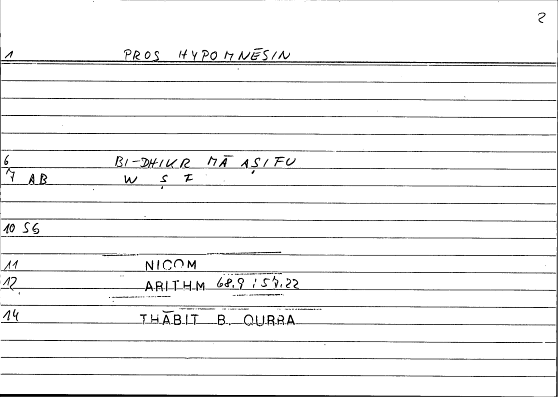 2
1 PROS HYPOMNĒSIN
6 BI-DHIKR MĀ AṢIFU
7 AB W Ṣ F
10 SG
11 NICOM
12 ARITHM 68.9 ; 57.22
14 THĀBIT B. QURRA